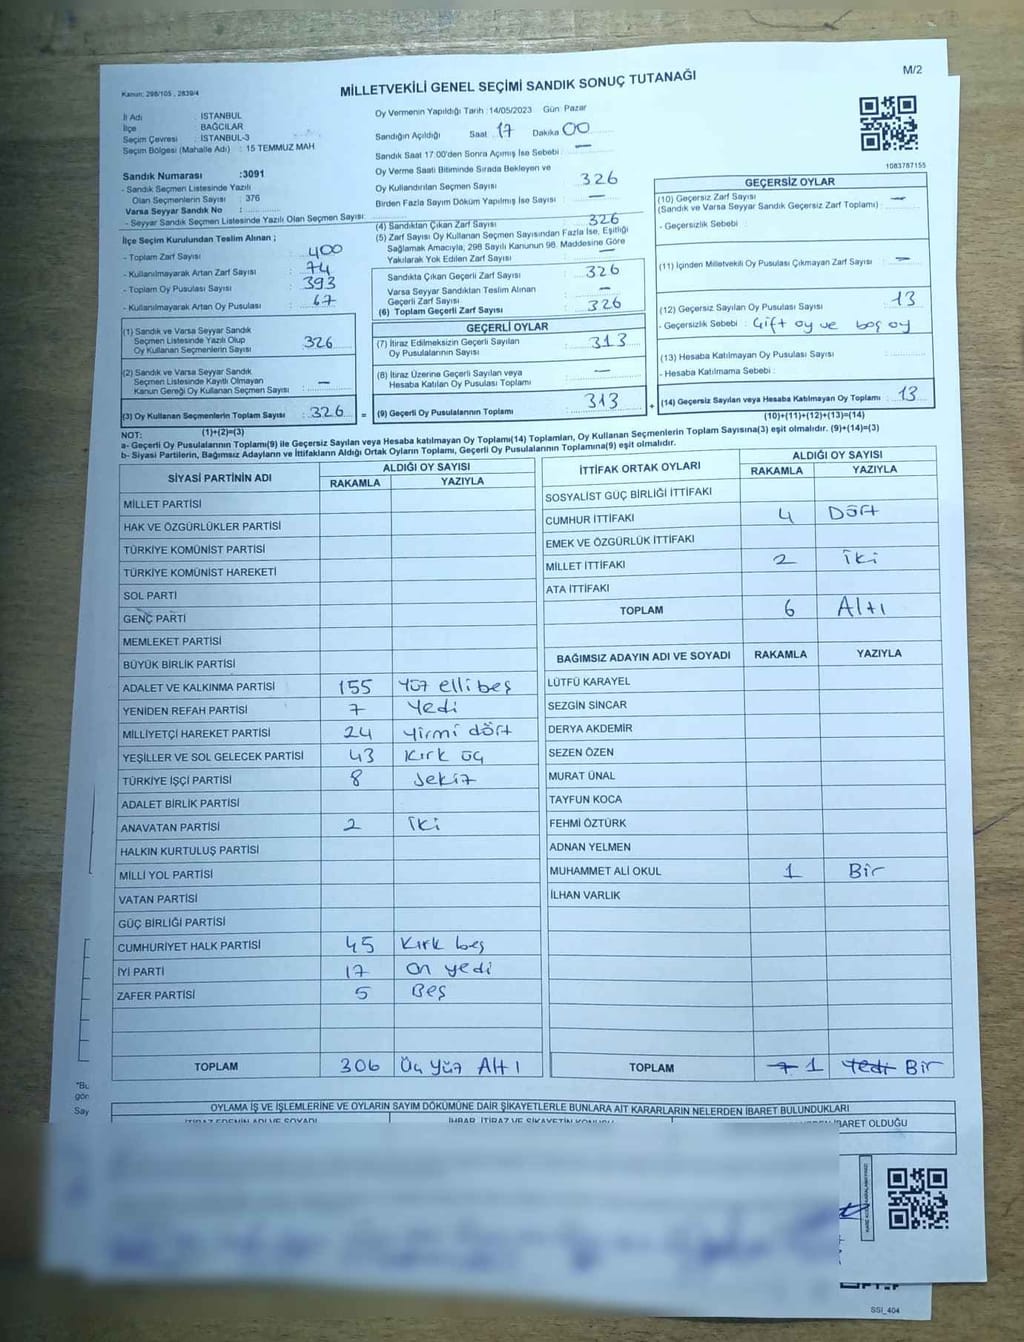 M/2
Kanun: 298/105 , 2839/4
MİLLETVEKİLİ GENEL SEÇİMİ SANDIK SONUÇ TUTANAĞI
İl Adı : İSTANBUL
İlçe : BAĞCILAR
Seçim Çevresi : İSTANBUL-3
Seçim Bölgesi (Mahalle Adı) : 15 TEMMUZ MAH
Oy Vermenin Yapıldığı Tarih :14/05/2023 Gün :Pazar
Sandığın Açıldığı Saat : 17 Dakika : 00
Sandık Saat 17:00'den Sonra Açımış İse Sebebi : —
Oy Verme Saati Bitiminde Sırada Bekleyen ve
Oy Kullandırılan Seçmen Sayısı : 326
Birden Fazla Sayım Döküm Yapılmış İse Sayısı : —
1083787155
Sandık Numarası :3091
- Sandık Seçmen Listesinde Yazılı
Olan Seçmenlerin Sayısı : 376
Varsa Seyyar Sandık No :
- Seyyar Sandık Seçmen Listesinde Yazılı Olan Seçmen Sayısı:
İlçe Seçim Kurulundan Teslim Alınan ;
- Toplam Zarf Sayısı : 400
- Kullanılmayarak Artan Zarf Sayısı : 74
- Toplam Oy Pusulası Sayısı : 393
- Kullanılmayarak Artan Oy Pusulası : 67
(1) Sandık ve Varsa Seyyar Sandık
Seçmen Listesinde Yazılı Olup
Oy Kullanan Seçmenlerin Sayısı : 326
(2) Sandık ve Varsa Seyyar Sandık
Seçmen Listesinde Kayıtlı Olmayan
Kanun Gereği Oy Kullanan Seçmen Sayısı : —
(3) Oy Kullanan Seçmenlerin Toplam Sayısı : 326 =
(1)+(2)=(3)
(4) Sandıktan Çıkan Zarf Sayısı : 326
(5) Zarf Sayısı Oy Kullanan Seçmen Sayısından Fazla İse, Eşitliği
Sağlamak Amacıyla, 298 Sayılı Kanunun 98. Maddesine Göre
Yakılarak Yok Edilen Zarf Sayısı : —
Sandıkta Çıkan Geçerli Zarf Sayısı : 326
Varsa Seyyar Sandıktan Teslim Alınan
Geçerli Zarf Sayısı : —
(6) Toplam Geçerli Zarf Sayısı : 326
GEÇERLİ OYLAR
(7) İtiraz Edilmeksizin Geçerli Sayılan
Oy Pusulalarının Sayısı : 313
(8) İtiraz Üzerine Geçerli Sayılan veya
Hesaba Katılan Oy Pusulası Toplamı : —
(9) Geçerli Oy Pusulalarının Toplamı : 313 +
GEÇERSİZ OYLAR
(10) Geçersiz Zarf Sayısı
(Sandık ve Varsa Seyyar Sandık Geçersiz Zarf Toplamı) : —
- Geçersizlik Sebebi :
(11) İçinden Milletvekili Oy Pusulası Çıkmayan Zarf Sayısı : —
(12) Geçersiz Sayılan Oy Pusulası Sayısı : 13
- Geçersizlik Sebebi : Çift oy ve boş oy
(13) Hesaba Katılmayan Oy Pusulası Sayısı :
- Hesaba Katılmama Sebebi :
(14) Geçersiz Sayılan veya Hesaba Katılmayan Oy Toplamı : 13
(10)+(11)+(12)+(13)=(14)
NOT:
a- Geçerli Oy Pusulalarının Toplamı(9) ile Geçersiz Sayılan veya Hesaba katılmayan Oy Toplamı(14) Toplamları, Oy Kullanan Seçmenlerin Toplam Sayısına(3) eşit olmalıdır. (9)+(14)=(3)
b- Siyasi Partilerin, Bağımsız Adayların ve İttifakların Aldığı Ortak Oyların Toplamı, Geçerli Oy Pusulalarının Toplamına(9) eşit olmalıdır.
SİYASİ PARTİNİN ADI ALDIĞI OY SAYISI
RAKAMLA YAZIYLA
MİLLET PARTİSİ
HAK VE ÖZGÜRLÜKLER PARTİSİ
TÜRKİYE KOMÜNİST PARTİSİ
TÜRKİYE KOMÜNİST HAREKETİ
SOL PARTİ
GENÇ PARTİ
MEMLEKET PARTİSİ
BÜYÜK BİRLİK PARTİSİ
ADALET VE KALKINMA PARTİSİ 155 Yüz elli beş
YENİDEN REFAH PARTİSİ 7 Yedi
MİLLİYETÇİ HAREKET PARTİSİ 24 Yirmi dört
YEŞİLLER VE SOL GELECEK PARTİSİ 43 Kırk üç
TÜRKİYE İŞÇİ PARTİSİ 8 Sekiz
ADALET BİRLİK PARTİSİ
ANAVATAN PARTİSİ 2 İki
HALKIN KURTULUŞ PARTİSİ
MİLLİ YOL PARTİSİ
VATAN PARTİSİ
GÜÇ BİRLİĞİ PARTİSİ
CUMHURİYET HALK PARTİSİ 45 Kırk beş
İYİ PARTİ 17 On yedi
ZAFER PARTİSİ 5 Beş
TOPLAM 306 Üç Yüz Altı
İTTİFAK ORTAK OYLARI ALDIĞI OY SAYISI
RAKAMLA YAZIYLA
SOSYALİST GÜÇ BİRLİĞİ İTTİFAKI
CUMHUR İTTİFAKI 4 Dört
EMEK VE ÖZGÜRLÜK İTTİFAKI
MİLLET İTTİFAKI 2 İki
ATA İTTİFAKI
TOPLAM 6 Altı
BAĞIMSIZ ADAYIN ADI VE SOYADI RAKAMLA YAZIYLA
LÜTFÜ KARAYEL
SEZGİN SİNCAR
DERYA AKDEMİR
SEZEN ÖZEN
MURAT ÜNAL
TAYFUN KOCA
FEHMİ ÖZTÜRK
ADNAN YELMEN
MUHAMMET ALİ OKUL 1 Bir
İLHAN VARLIK
TOPLAM 7 1 Yedi Bir
"Bu
gön
Say
OYLAMA İŞ VE İŞLEMLERİNE VE OYLARIN SAYIM DÖKÜMÜNE DAİR ŞİKAYETLERLE BUNLARA AİT KARARLARIN NELERDEN İBARET BULUNDUKLARI
İTİRAZ EDENİN ADI VE SOYADI İHBAR, İTİRAZ VE ŞİKAYETİN KONUSU İBARET OLDUĞU
SSI_404